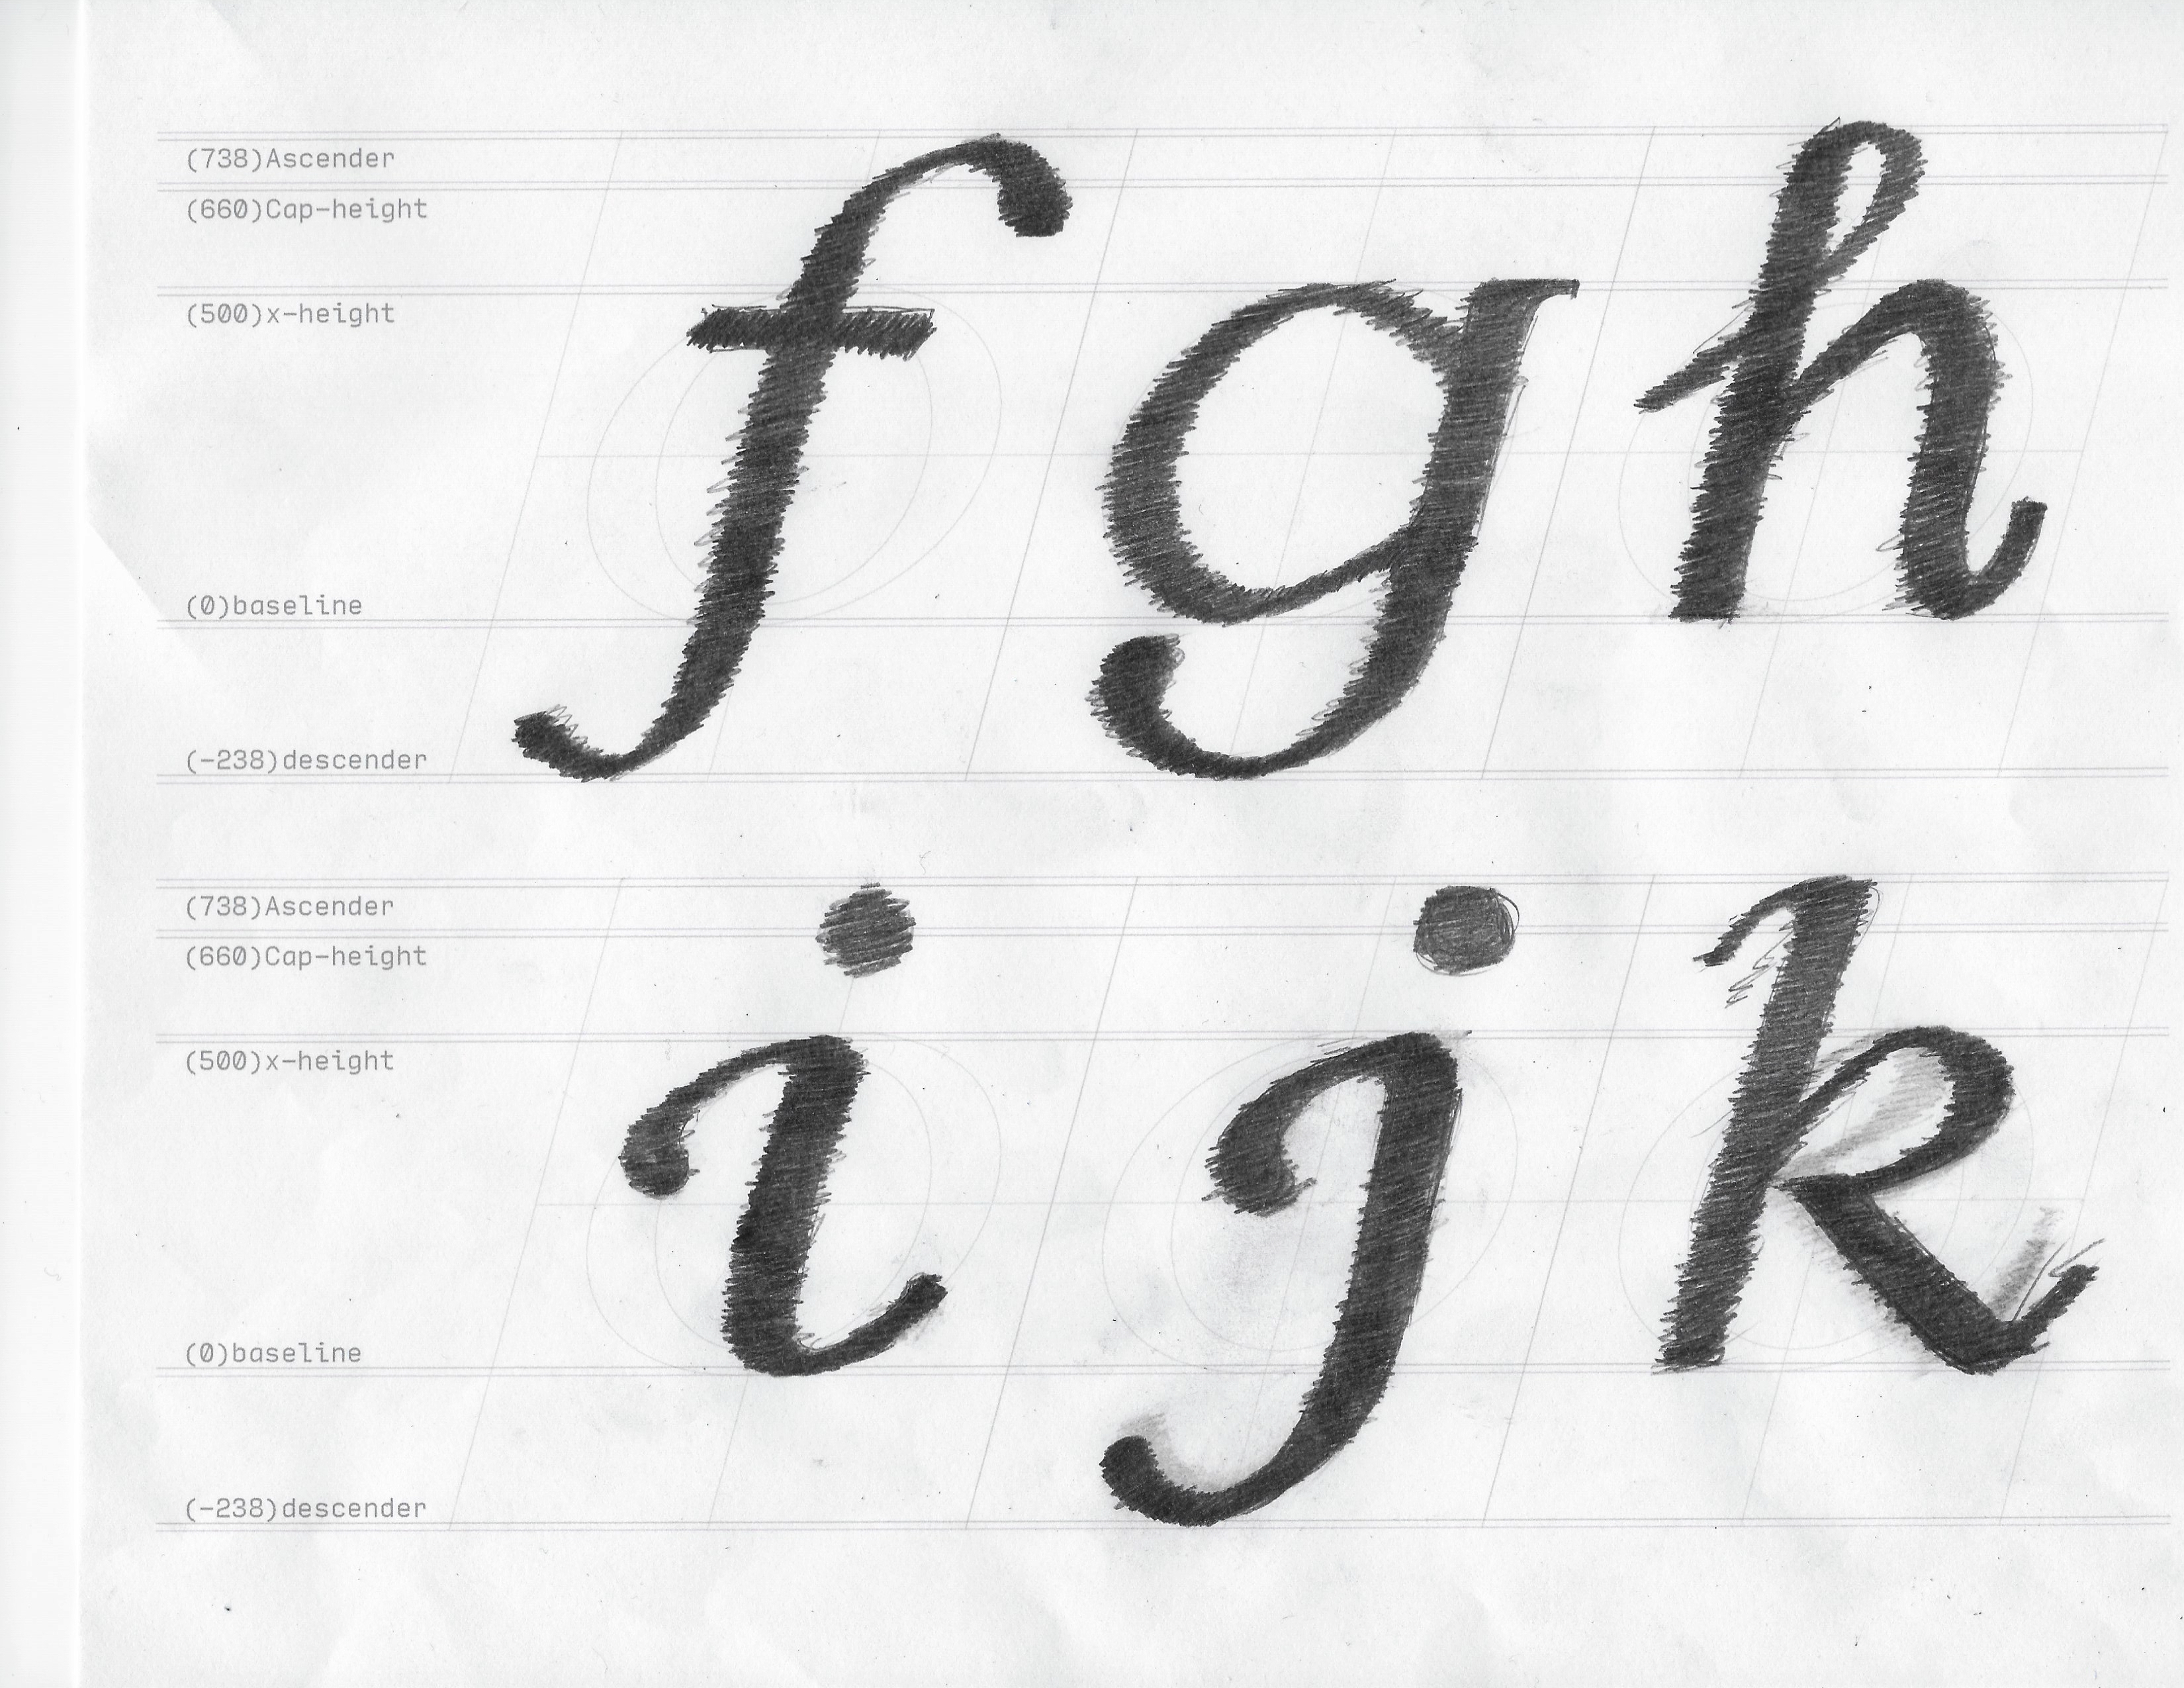 (738)Ascender
(660)Cap-height
(500)x-height
(0)baseline
(-238)descender
f g h
(738)Ascender
(660)Cap-height
(500)x-height
(0)baseline
(-238)descender
i j k